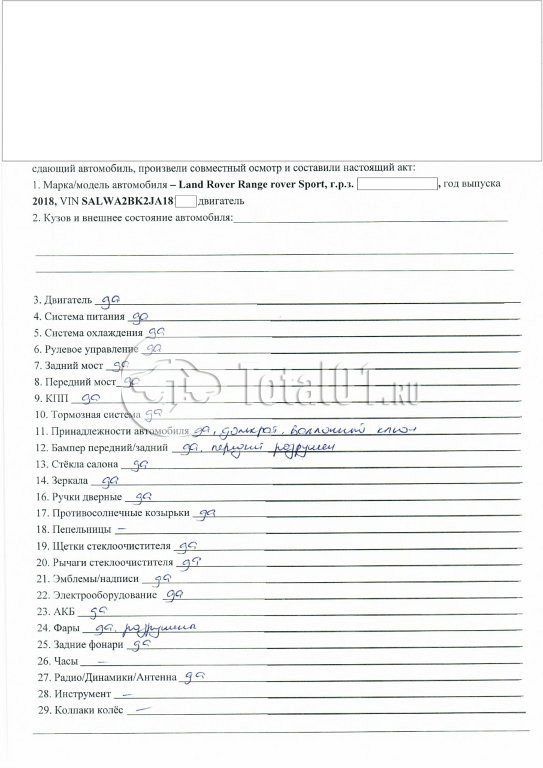 сдающий автомобиль, произвели совместный осмотр и составили настоящий акт:
1. Марка/модель автомобиля – Land Rover Range rover Sport, г.р.з. , год выпуска
2018, VIN SALWA2BK2JA18 двигатель
2. Кузов и внешнее состояние автомобиля:
3. Двигатель да
4. Система питания да
5. Система охлаждения да
6. Рулевое управление да
7. Задний мост да
8. Передний мост да
Total01.RU
9. КПП да
10. Тормозная система да
11. Принадлежности автомобиля да, домкрат, баллонный ключ
12. Бампер передний/задний да, передний разрушен
13. Стёкла салона да
14. Зеркала да
16. Ручки дверные да
17. Противосолнечные козырьки да
18. Пепельницы –
19. Щетки стеклоочистителя да
20. Рычаги стеклоочистителя да
21. Эмблемы/надписи да
22. Электрооборудование да
23. АКБ да
24. Фары да, разрушены
25. Задние фонари да
26. Часы –
27. Радио/Динамики/Антенна да
28. Инструмент –
29. Колпаки колёс –